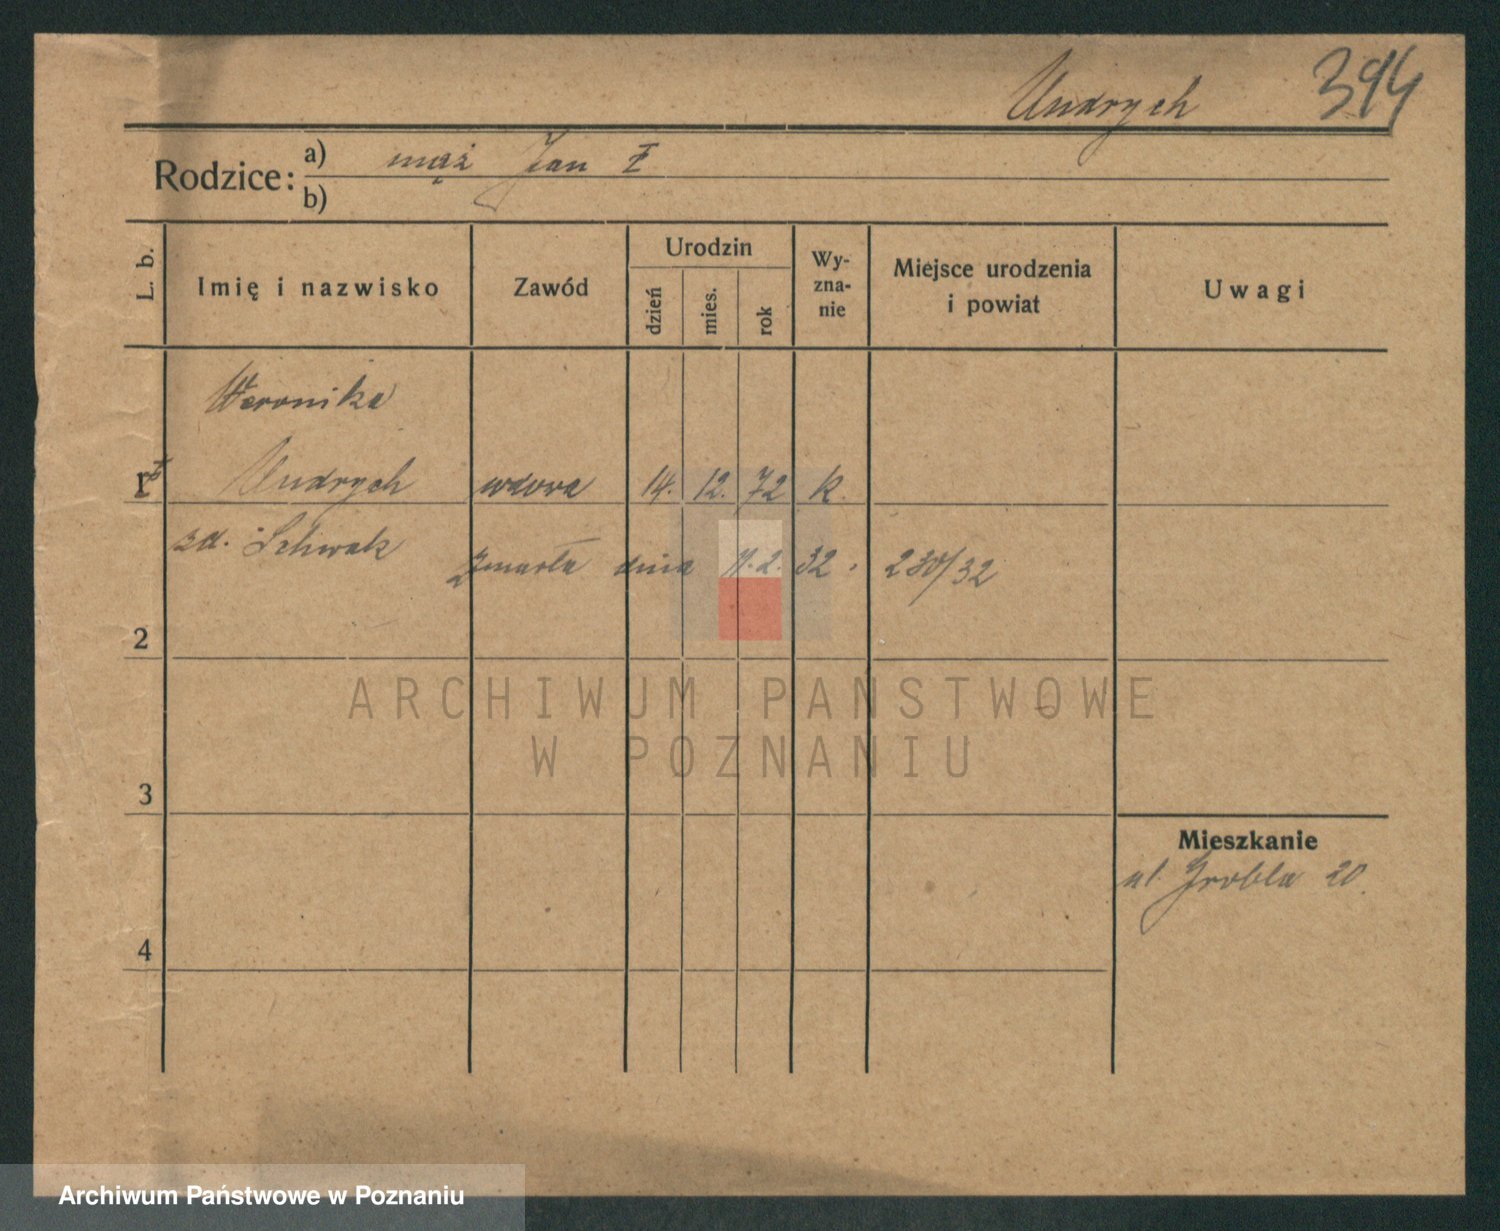 Undrych 394
Rodzice: a) mąż Jan ‡
b)
L. b. Imię i nazwisko Zawód Urodzin dzień mies. rok Wy-zna-nie Miejsce urodzenia i powiat Uwagi
Weronika
1 Undrych wdowa 14. 12. 72 k.
zd.
Zmarła dnia 11.2.32. 230/32
2
3
Mieszkanie
ul. Grobla 20.
4
ARCHIWUM PAŃSTWOWE
W POZNANIU
Archiwum Państwowe w Poznaniu